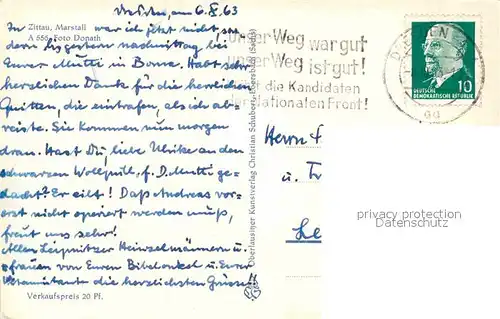 Dresden, am 6.X.63
Zittau, Marstall
A 656 Foto Donath
In war ich jetzt nicht, son-
dern bis gestern nachmittag bei
Eurer Mutti in Borna. Habt
herzlichen Dank für die herrlichen
Quitten, die eintrafen, als ich ab-
reiste. Sie kommen nun morgen
dran. Hast Du, liebe Ulrike an den
schwarzen Wollpulli f. D. Mutti ge-
dacht? Er eilt! Daß Andreas vor-
erst nicht operiert werden muß,
freut uns sehr!
Allen Leipnitzer Heinzelmännern u.
-frauen von Euren Bibelonkel u. Eurer
die herzlichsten Grüße!!
Verkaufspreis 20 Pf.
Oberlausitzer Kunstverlag Christian Schubert, Ebersbach (Sachs)
Unser Weg war gut
Unser Weg ist gut!
die Kandidaten
Nationalen Front!
DRESDEN
10
DEUTSCHE
DEMOKRATISCHE REPUBLIK
Herrn
u.
privacy protection
Datenschutz